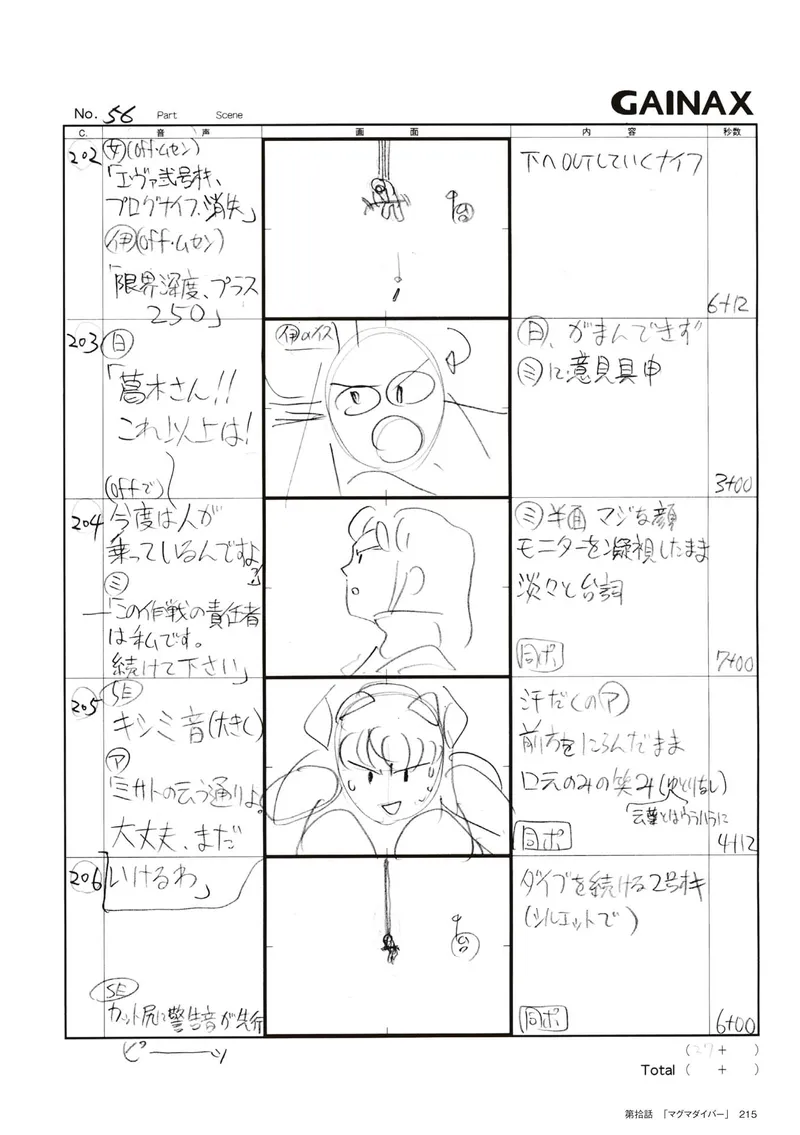 GAINAX
No. 56 Part Scene
C. 音 声 画 面 内 容 秒数
202
女(off・ムセン)
「エヴァ弐号機、
プログナイフ、消失」
伊(off・ムセン)
「限界深度、プラス
250」
下へOUTしていくナイフ
6+12
203
日
「葛木さん!!
これ以上は!
(offで)
伊のイス
日、がまんできず
ミに意見具申
3+00
204
今度は人が
乗っているんですよ
ミ
「この作戦の責任者
は私です。
続けて下さい」
ミ 半面 マジな顔
モニターを凝視したまま
淡々と台詞
同ポ
7+00
205
SE
キシミ音(大きく)
ア
「ミサトの云う通りよ。
大丈夫、まだ
汗だくのア
前方をにらんだまま
口元のみの笑み(ゆとりなし)
言葉とはウラハラに
同ポ
4+12
206
いけるわ」
SE
カット尻に警告音が先行
ピーーッ
ダイブを続ける2号機
(シルエットで)
同ポ
6+00
(27+ )
Total ( + )
第拾話 「マグマダイバー」 215